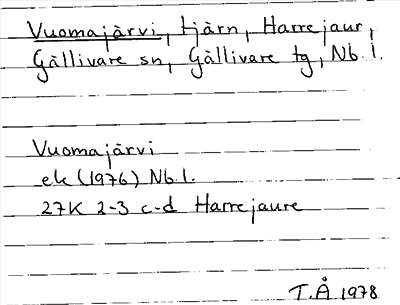 Vuomajärvi, tjärn, Harrejaur,
Gällivare sn, Gällivare tg, Nb. l.
Vuomajärvi
ek (1976) Nb l.
27K 2-3 c-d Harrejaure
T.Å 1978